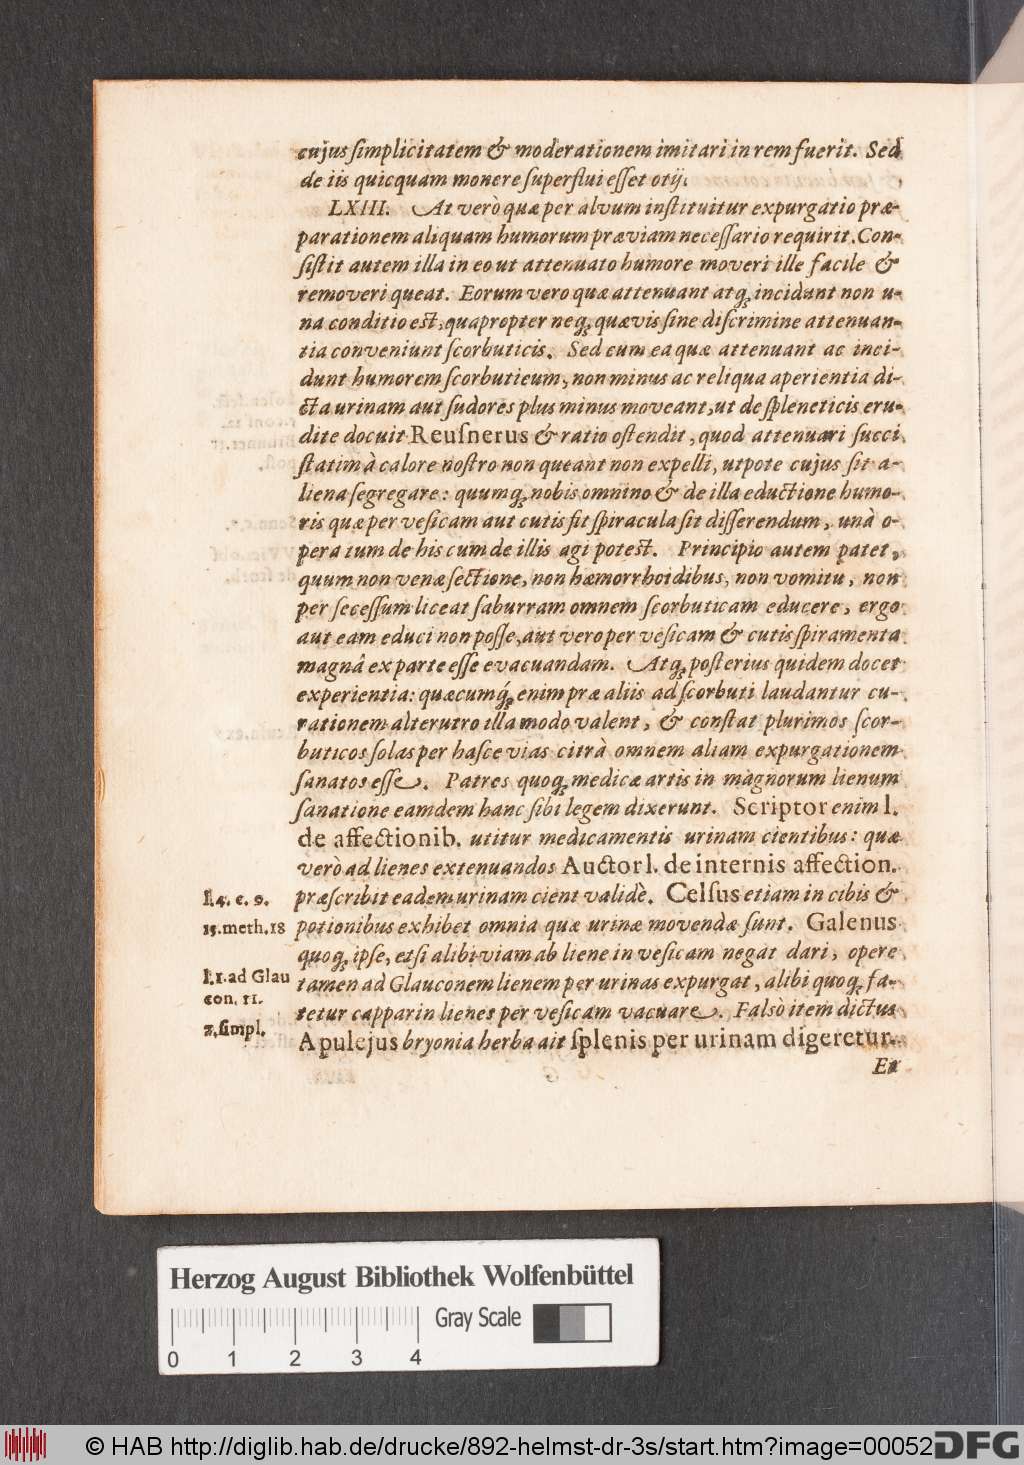 cujus ſimplicitatem & moderationem imitari in rem fuerit. Sed
de iis quicquam monere ſuperflui eſſet otij.
LXIII. At verò quæ per alvum inſtituitur expurgatio præ-
parationem aliquam humorum præviam neceſſario requirit. Con-
ſiſtit autem illa in eo ut attenuato humore moveri ille facile &
removeri queat. Eorum vero quæ attenuant atq; incidunt non u-
na conditio est, quapropter neq; quævis ſine diſcrimine attenuan-
tia conveniunt ſcorbuticis. Sed cum ea quæ attenuant ac inci-
dunt humorem ſcorbuticum, non minus ac reliqua aperientia di-
cta urinam aut ſudores plus minus moveant, ut de ſpleneticis eru-
dite docuit Reuſnerus & ratio oſtendit, quod attenuari ſucci
ſtatim à calore noſtro non queant non expelli, utpote cujus ſit a-
liena ſegregare: quumq; nobis omnino & de illa eductione humo-
ris quæ per veſicam aut cutis fit ſpiracula ſit diſſerendum, unà o-
pera tum de his cum de illis agi potest. Principio autem patet,
quum non venæ ſectione, non hæmorrhoidibus, non vomitu, non
per ſeceſſum liceat ſaburram omnem ſcorbuticam educere, ergo
aut eam educi non poſſe, aut vero per veſicam & cutis ſpiramenta
magnâ ex parte eſſe evacuandam. Atq; poſterius quidem docet
experientia: quæcumq; enim præ aliis ad ſcorbuti laudantur cu-
rationem alterutro illa modo valent, & conſtat plurimos ſcor-
buticos ſolas per haſce vias citrà omnem aliam expurgationem
ſanatos eſſe. Patres quoq; medicæ artis in magnorum lienum
ſanatione eamdem hanc ſibi legem dixerunt. Scriptor enim l.
de affectionib. utitur medicamentis urinam cientibus: quæ
verò ad lienes extenuandos Auctor l. de internis affection.
l.4. c. 9. præſcribit eadem urinam cient validè. Celſus etiam in cibis &
13.meth.18 potionibus exhibet omnia quæ urinæ movendæ ſunt. Galenus
quoq; ipſe, etſi alibi viam ab liene in veſicam negat dari, opere
l.1. ad Glau tamen ad Glauconem lienem per urinas expurgat, alibi quoq; fa-
con. 11. tetur capparin lienes per veſicam vacuare. Falsò item dictus
7.ſimpl. Apulejus bryonia herba ait ſplenis per urinam digeretur.
Et
Herzog August Bibliothek Wolfenbüttel
Gray Scale
0 1 2 3 4
© HAB http://diglib.hab.de/drucke/892-helmst-dr-3s/start.htm?image=00052
DFG